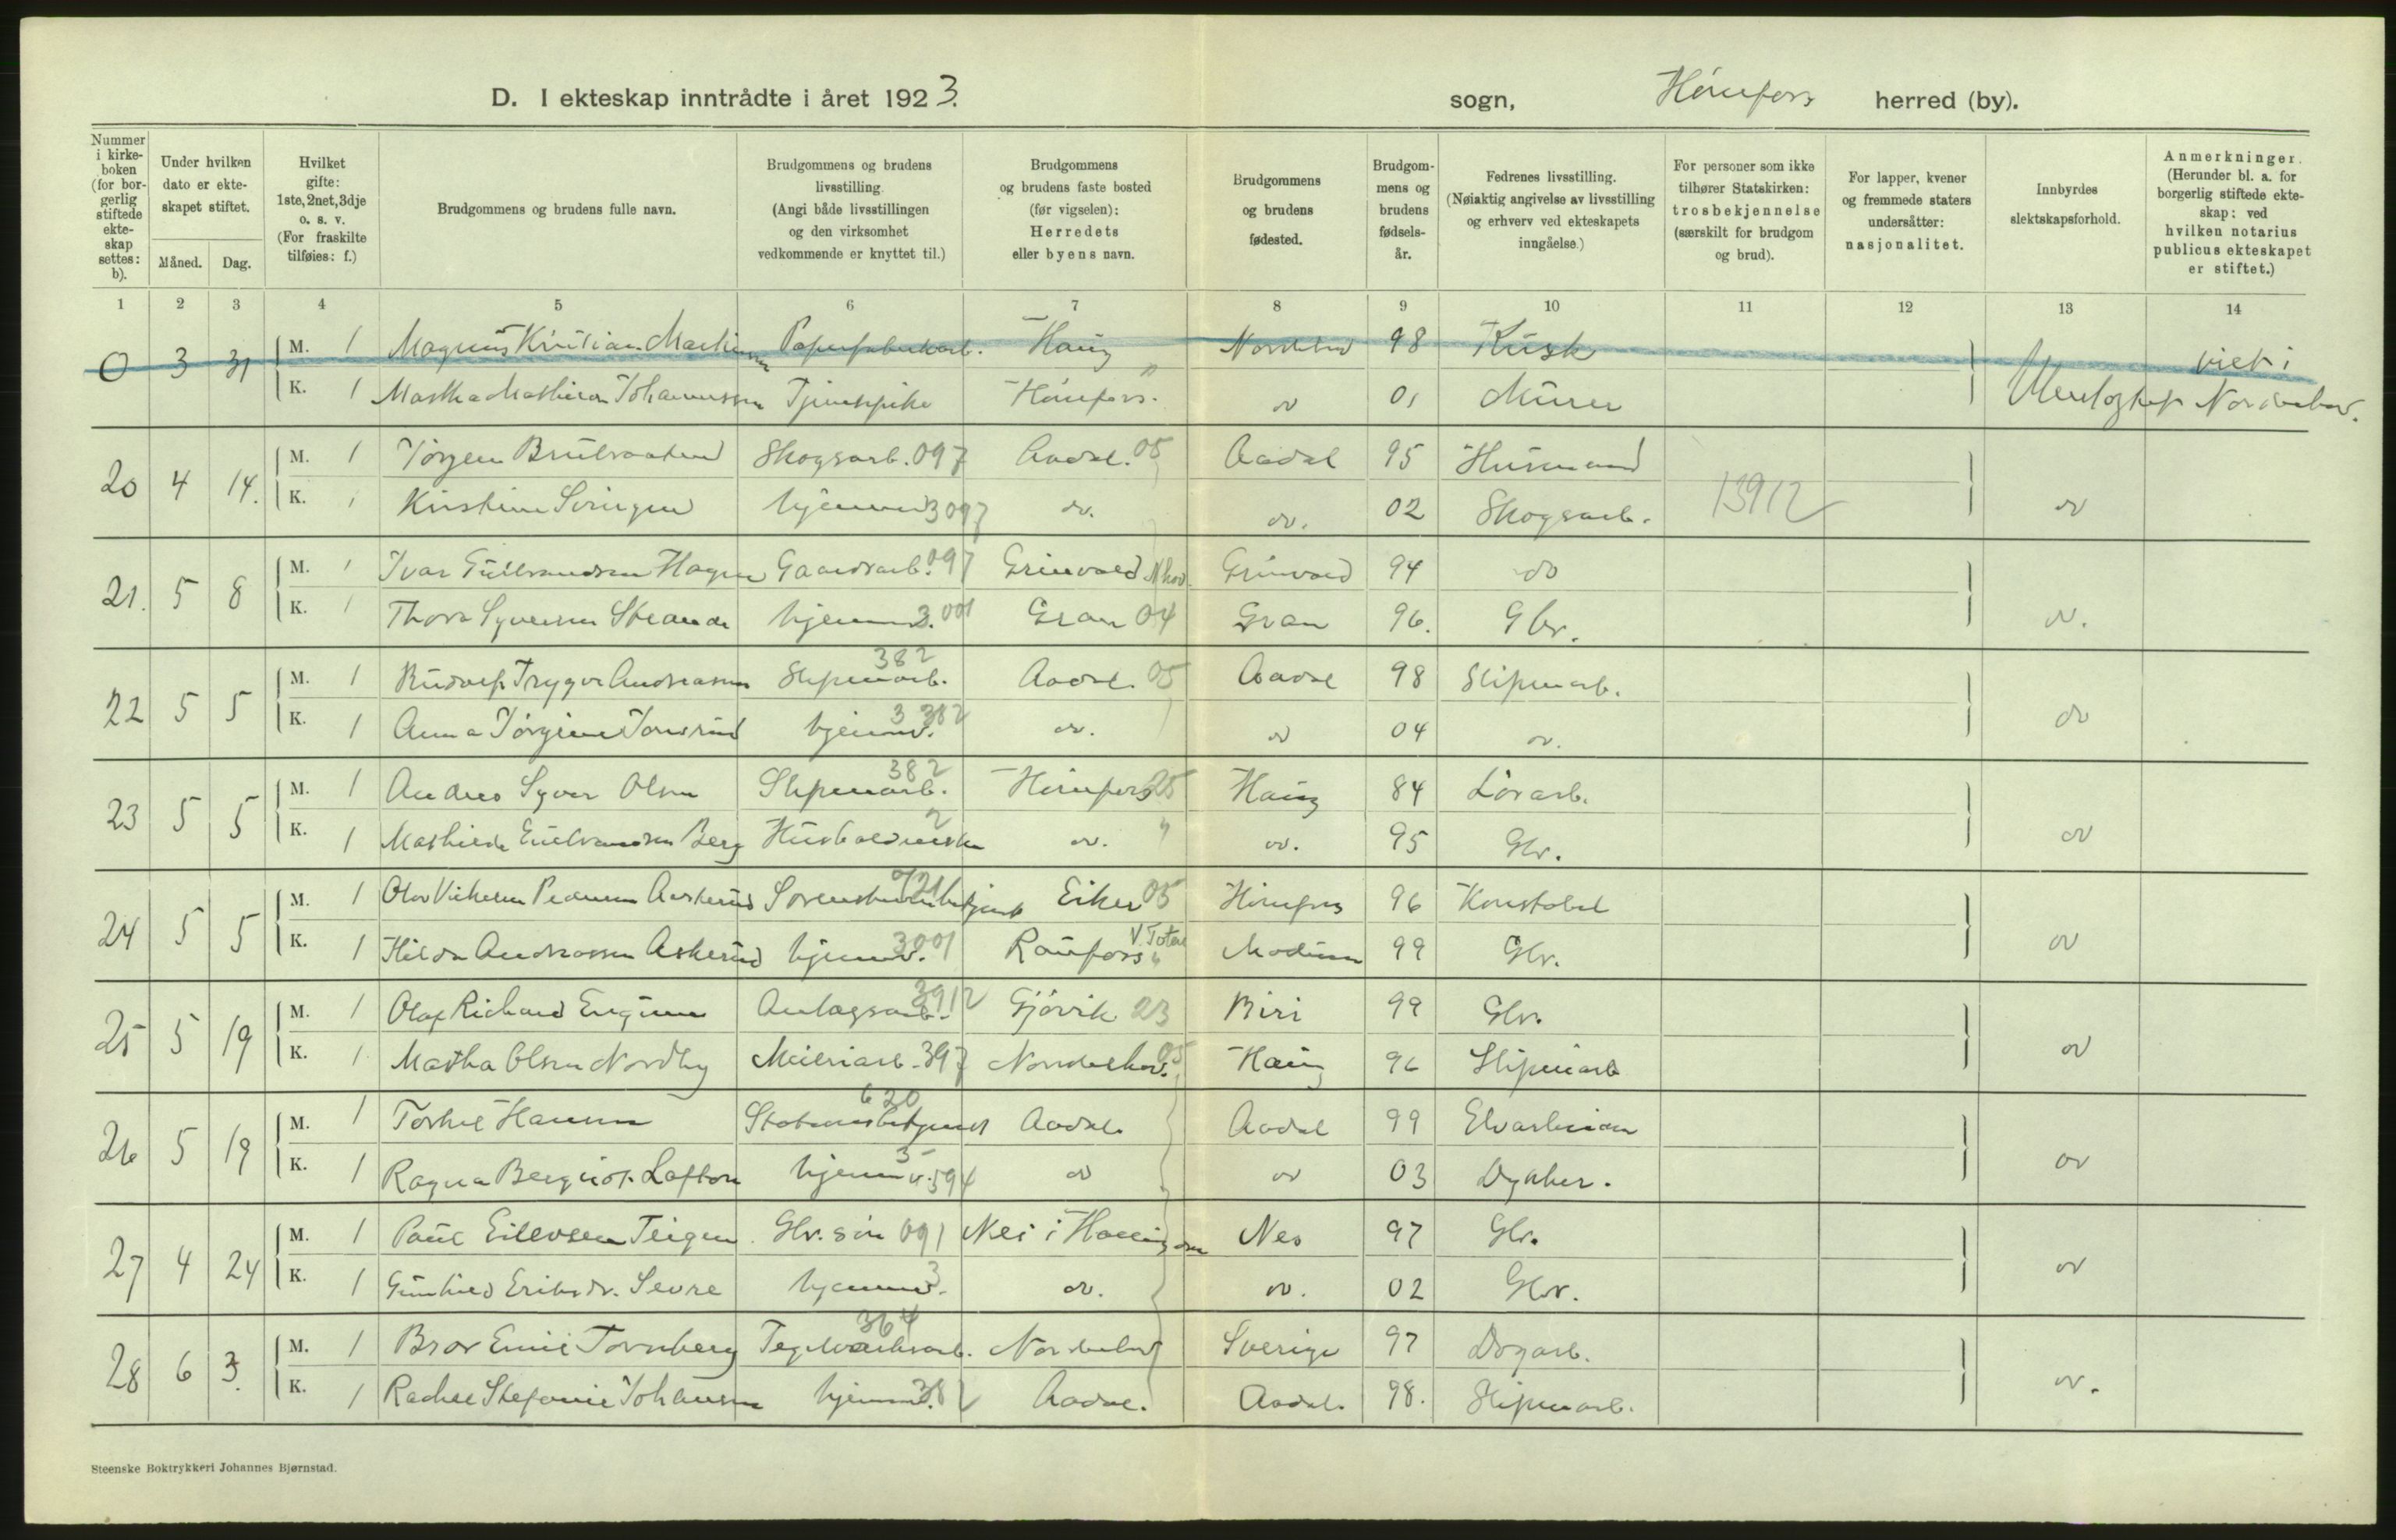 D. I ekteskap inntrådte i året 1923. sogn, Hønefoss herred (by).
Nummer i kirkeboken (for borgerlig stiftede ekteskap settes: b).
Under hvilken dato er ekteskapet stiftet.
Måned. Dag.
Hvilket gifte: 1ste, 2net, 3dje o. s. v. (For fraskilte tilføies: f.)
Brudgommens og brudens fulle navn.
Brudgommens og brudens livsstilling. (Angi både livsstillingen og den virksomhet vedkommende er knyttet til.)
Brudgommens og brudens faste bosted (før vigselen): Herredets eller byens navn.
Brudgommens og brudens fødested.
Brudgommens og brudens fødselsår.
Fedrenes livsstilling. (Nøiaktig angivelse av livsstilling og erhverv ved ekteskapets inngåelse.)
For personer som ikke tilhører Statskirken: trosbekjennelse (særskilt for brudgom og brud).
For lapper, kvener og fremmede staters undersåtter: nasjonalitet.
Innbyrdes slektskapsforhold.
Anmerkninger. (Herunder bl. a. for borgerlig stiftede ekteskap: ved hvilken notarius publicus ekteskapet er stiftet.)
1 2 3 4 5 6 7 8 9 10 11 12 13 14
0 3 31 M. 1 Magnus Kristian Haug 98 Kusk viet i
K. 1 Hønefoss " do 01 Murer
20 4 14. M. 1 Jørgen Skogsarb. 097 Aadal. 05 Aadal 95 Husmand
K. 1 Kirstine hjemmev. 3 097 do. do. 02 Skogsarb. 13912 do
21. 5 8 M. 1 Ivar Gulbrandsen Hagen Gaardsarb. 097 94 do
K. 1 Thora Syversen hjemmev. 3.001 Gran 04 Gran 96. Gbr. do.
22 5 5 M. 1 Rudolf Trygve Andreasen Sliperiarb. 382 Aadal. 05 Aadal 98 Sliperiarb.
K. 1 Anna Jørgine hjemmev. 3 382 do. do 04 do. do
23 5 5 M. 1 Anders Syver Olsen Sliperiarb. 382 Hønefoss 25 Haug 84 Løsarb.
K. 1 Mathilde Gulbrandsen Berg 2 do. " do. 95 Gbr. do
24 5 5 M. 1 Eiker 05 Hønefoss 96 Konstabel
K. 1 Hilda Andreassen Askerud hjemmev. 3001 Raufoss V. Toten " Modum 99 Gbr. do
25 5 19 M. 1 Olaf Richard Anlagsarb. 3912 Gjøvik 23 Biri 99 Gbr.
K. 1 Martha Olsen Nordby Meieriarb. 397 Norderhov. 05 Haug 96 Sliperiarb do
26 5 19 M. 1 Torkel Hansen Stationsbetjent 620 Aadal. Aadal 99 Elvarbeider
K. 1 Ragna hjemmev. 3 594 do do 03 do
27 4 24 M. 1 Paul Eilevsen Teigen Gbr. søn 091 Nes i Hallingdal Nes 97 Gbr.
K. 1 Gunhild Eriksdr. Sevre hjemmev. 3 do. do. 02 Gbr. do
28 6 3. M. 1 Bror Emil Tornberg Teglverksarb. 364 Norderhov Sverige 97 Dagarb.
K. 1 Rachel Stefanie Johansen hjemmev. 382 Aadal. Aadal. 98. Sliperiarb. do.
Steenske Boktrykkeri Johannes Bjørnstad.